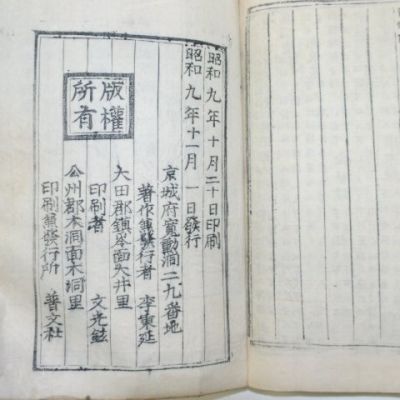 昭和九年十月二十日印刷
昭和九年十一月一日發行
京城府寬勳洞二九番地
著作兼發行者 李東延
大田郡鎭岑面
印刷者 文光鉉
公州郡木洞面木洞里
印刷兼發行所 普文社
版權
所有